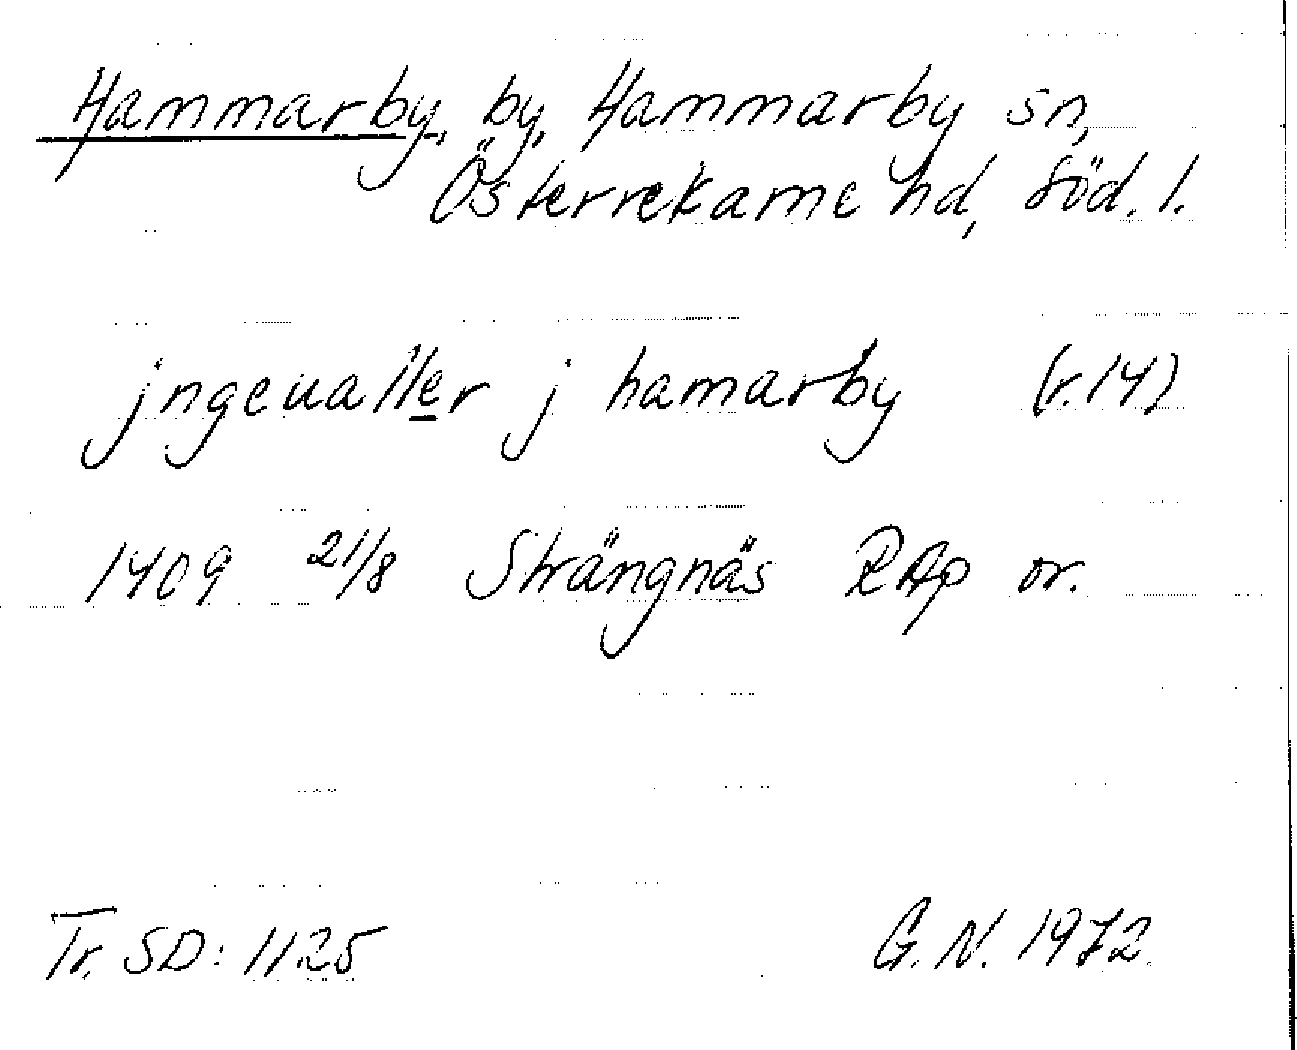 Hammarby, by, Hammarby sn,
Österrekarne hd, Söd. l.
jngeualler j hamarby (r. 14)
1409 21/8 Strängnäs RAp or.
Tr. SD: 1125
G. N. 1972